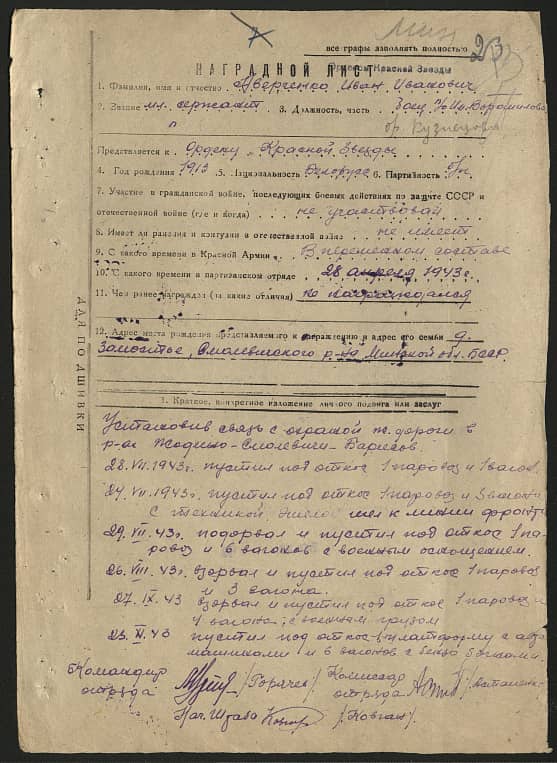 7
23
все графы заполнять полностью
НАГРАДНОЙ ЛИСТ
Орденом Красной Звезды
1. Фамилия, имя и отчество Аверченко Иван Иванович
2. Звание мл. сержант 3. Должность, часть Ворошилова
бр. Кузнецова
Представляется к Ордену „Красной Звезды
4. Год рождения 1913 5. Национальность Белорус 6. Партийность
7. Участие в гражданской войне, последующих боевых действиях по защите СССР и
отечественной войне (где и когда) не участвовал
8. Имеет ли ранения и контузии в отечественной войне не имеет
9. С какого времени в Красной Армии В переменном составе
10. С какого времени в партизанском отряде 28 апреля 1943 г.
11. Чем ранее награжден (за какие отличия) не награждался
12. Адрес места рождения представляемого к награждению и адрес его семьи д.
Замостье, Смолевичского р-на Минской обл. БССР.
ДЛЯ ПОДШИВКИ
1. Краткое, конкретное изложение личного подвига или заслуг
Установив связь с охраной ж. дороги в
р-не Жодино-Смолевичи-Борисов.
28.VII.1943г. пустил под откос 1 паровоз и 1 вагон.
24.VII.1943г. пустил под откос 1 паровоз и 5 вагонов
с техникой. Эшелон шел к линии фронта
29.VII.43г. подорвал и пустил под откос 1 па-
ровоз и 6 вагонов с военным оснощением.
26.VIII.43г. взорвал и пустил под откос 1 паровоз
и 3 вагона.
27.IX.43 взорвал и пустил под откос 1 паровоз и
4 вагона с военным грузом
25.XI.43 пустил под откос платформу с авто
машинами и 6 вагонов с
Командир
отряда /Горачев/ Комиссар
отряда
Нач. Штаба /Ковган/